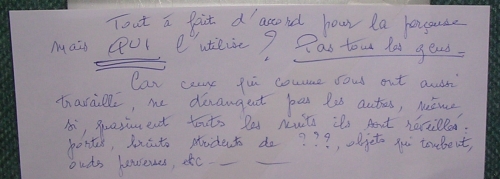 Tout à fait d'accord pour la perceuse
mais QUI l'utilise ? Pas tous les gens.
Car ceux qui comme vous ont aussi
travaillé, ne dérangent pas les autres, même
si, quasiment toutes les nuits ils sont réveillés :
portes, bruits stridents de ???, objets qui tombent,
ondes perverses, etc